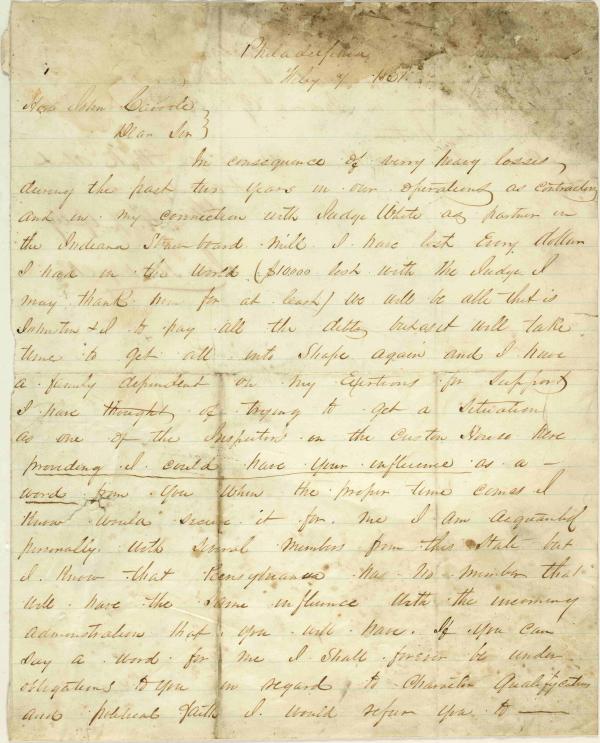 Philadelphia
Feby 9, 1861
Hon John Covode
Dear Sir
In consequence of verry heavy losses
during the past two years in our operations as contractors
and in my connection with Judge White as partner in
the Indiana Straw board Mill I have lost Every dollar
I had in the world ($10000 lost with the Judge I
may thank him for at least) we will be able that is
Johnston & I to pay all the debts but it will take
time to get all into Shape again and I have
a family dependent on my Exertions for Support
I have thought of trying to get a Situation
as one of the Inspectors in the Custom House here
providing I could have your influence as a
word from you when the proper time comes I
know would secure it for me I am acquainted
personally with several Members from this State but
I know that Pensylvania has no member that
will have the same influence with the incoming
administration that you will have. If you can
Say a word for me I Shall forever be under
obligations to you in regard to Character Qualification
and political Faith I would refer you to